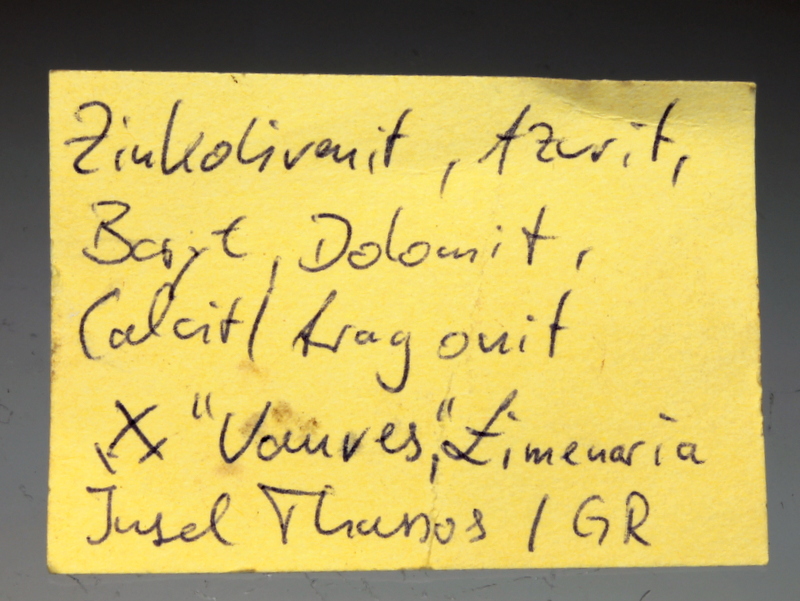 Zinkolivenit, Azurit,
Baryt, Dolomit,
Calcit/Aragonit
⚒ "Vouves", Limenaria
Insel Thassos / GR